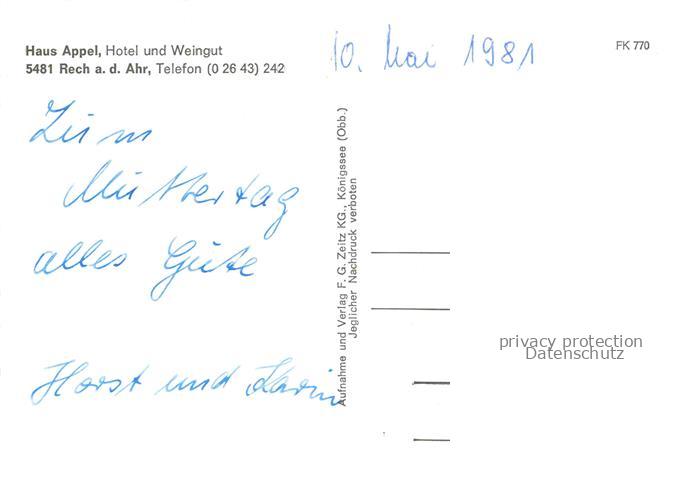 Haus Appel, Hotel und Weingut
5481 Rech a. d. Ahr, Telefon (0 26 43) 242
10. Mai 1981
FK 770
Zum
Muttertag
alles Gute
Horst und Karin
Aufnahme und Verlag F. G. Zeitz KG., Königssee (Obb.)
Jeglicher Nachdruck verboten
privacy protection
Datenschutz